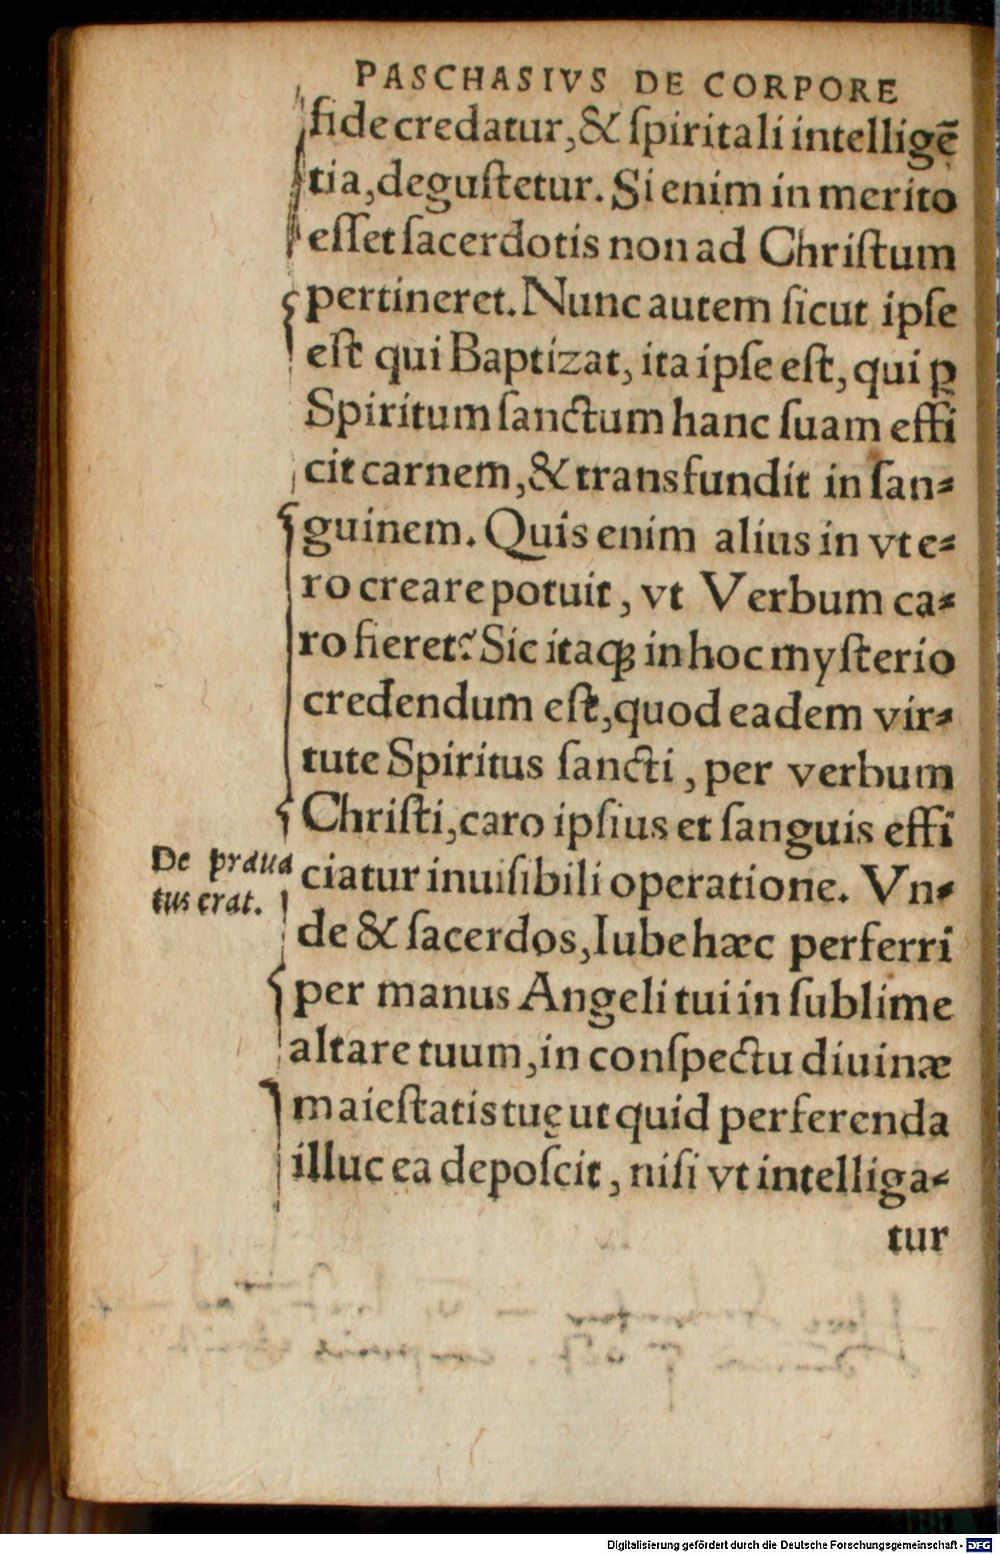 PASCHASIVS DE CORPORE
fide credatur, & ſpiritali intelligẽ
tia, deguſtetur. Si enim in merito
eſſet ſacerdotis non ad Chriſtum
pertineret. Nunc autem ſicut ipſe
eſt qui Baptizat, ita ipſe eſt, qui ꝑ
Spiritum ſanctum hanc ſuam effi
cit carnem, & transfundit in ſan⸗
guinem. Quis enim alius in vte⸗
ro creare potuit, vt Verbum ca⸗
ro fieret? Sic itaqꝫ in hoc myſterio
credendum eſt, quod eadem vir⸗
tute Spiritus ſancti, per verbum
Chriſti, caro ipſius et ſanguis effi
De praua
ciatur inuiſibili operatione. Vn⸗
tus erat.
de & ſacerdos, Iube hæc perferri
per manus Angeli tui in ſublime
altare tuum, in conſpectu diuinæ
maieſtatis tuę ut quid perferenda
illuc ea depoſcit, niſi vt intelliga⸗
tur
Digitalisierung gefördert durch die Deutsche Forschungsgemeinschaft - DFG